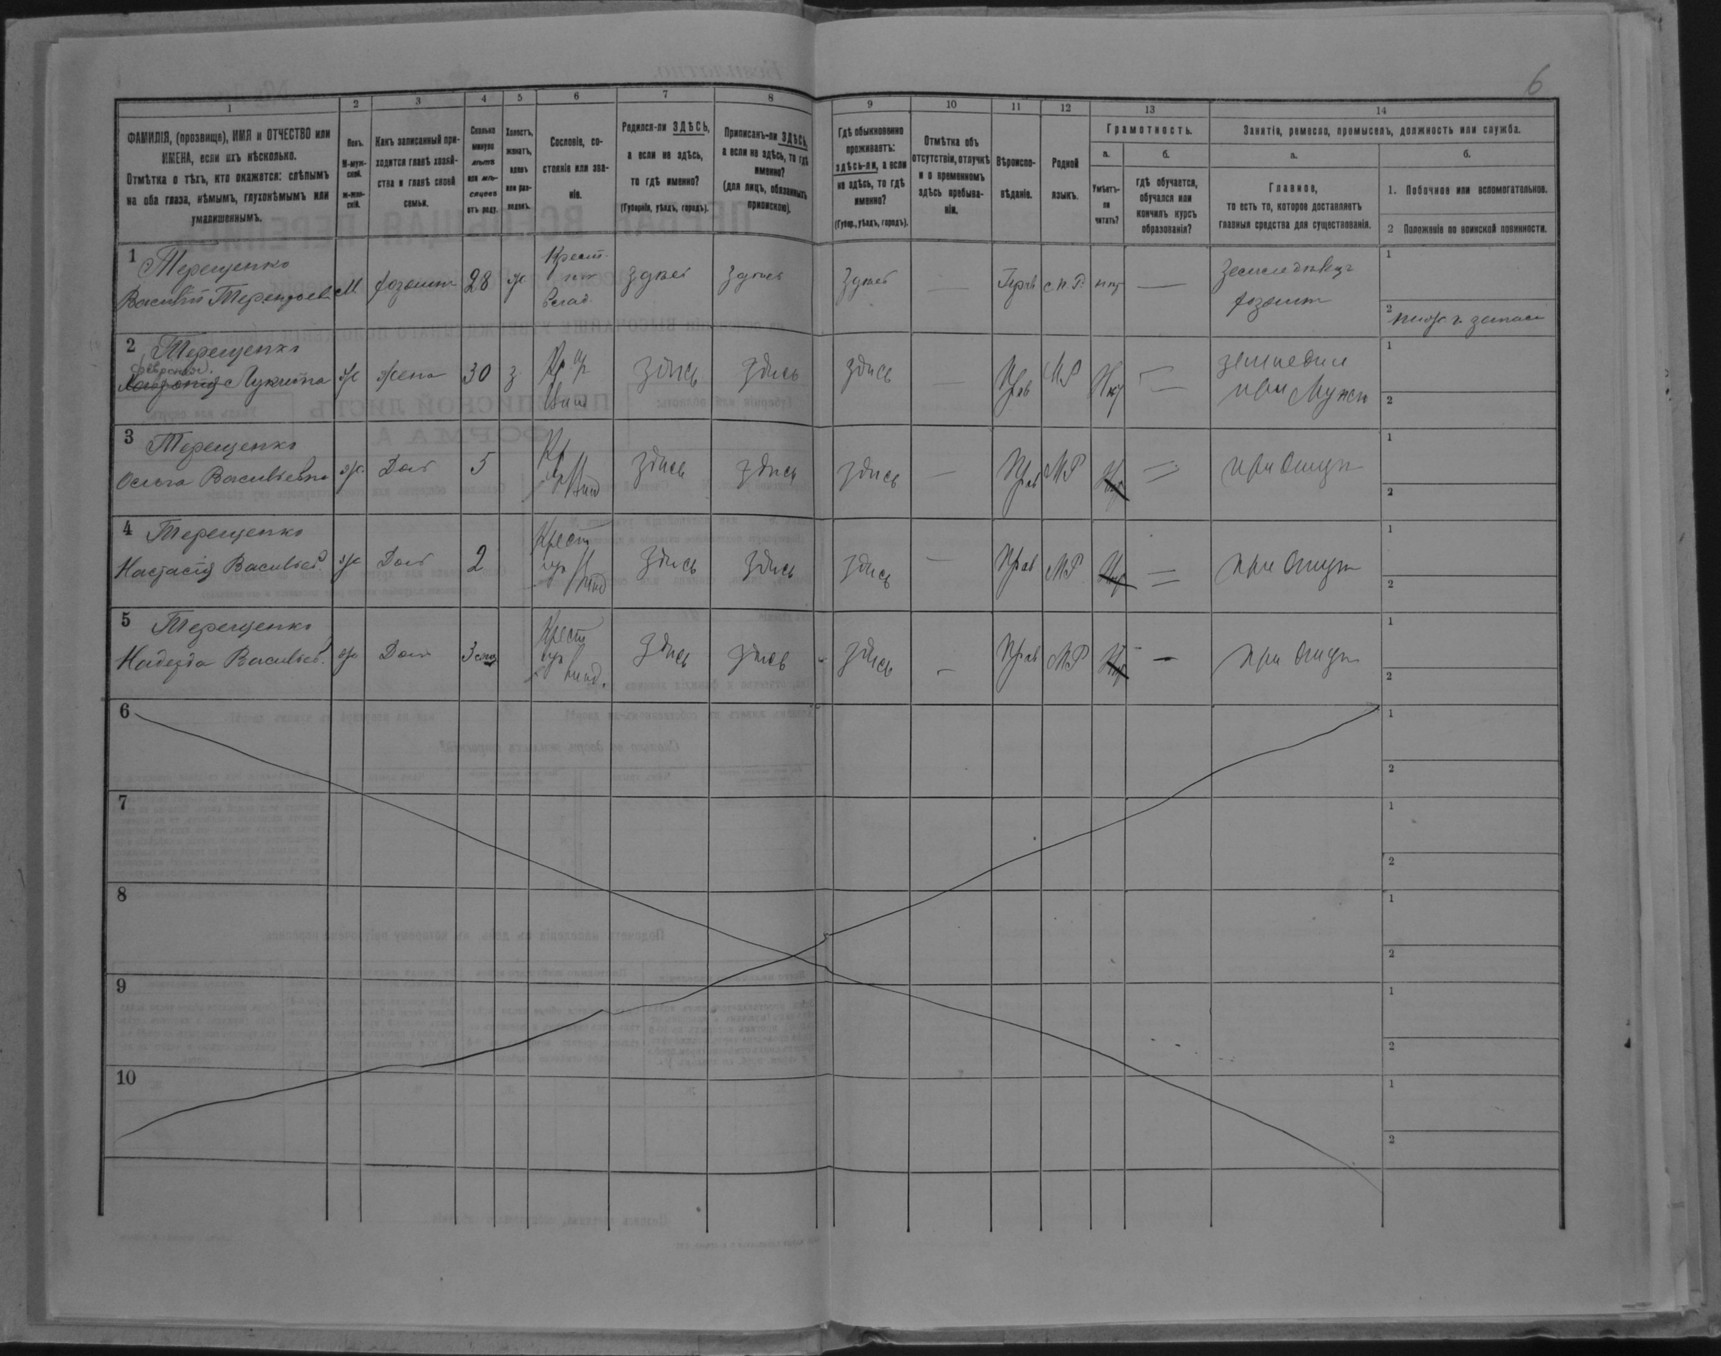 6
1
2
3
4
5
6
7
8
9
10
11
12
13
14
ФАМИЛІЯ, (прозвище), ИМЯ и ОТЧЕСТВО или
ИМЕНА, если ихъ нѣсколько.
Отмѣтка о тѣхъ, кто окажется: слѣпымъ
на оба глаза, нѣмымъ, глухонѣмымъ или
умалишеннымъ.
Полъ.
М-муж-
ской.
ж-жен-
скій.
Какъ записанный при-
ходится главѣ хозяй-
ства и главѣ своей
семьи.
Сколько
минуло
лѣтъ
или мѣ-
сяцевъ
отъ роду.
Холостъ,
женатъ,
вдовъ
или раз-
веденъ.
Сословіе, со-
стояніе или зва-
ніе.
Родился-ли ЗДѢСЬ,
а если не здѣсь,
то гдѣ именно?
(Губернія, уѣздъ, городъ).
Приписанъ-ли ЗДѢСЬ,
а если не здѣсь, то гдѣ
именно?
(для лицъ, обязанныхъ
припискою).
Гдѣ обыкновенно
проживаетъ:
здѣсь-ли, а если
не здѣсь, то гдѣ
именно?
(Губер., уѣздъ, городъ).
Отмѣтка объ
отсутствіи, отлучкѣ
и о временномъ
здѣсь пребыва-
ніи.
Вѣроиспо-
вѣданіе.
Родной
языкъ.
Грамотность.
а.
Умѣетъ-
ли
читать?
б.
гдѣ обучается,
обучался или
кончилъ курсъ
образованія?
Занятіе, ремесло, промыселъ, должность или служба.
а.
Главное,
то есть то, которое доставляетъ
главныя средства для существованія.
б.
1. Побочное или вспомогательное.
2 Положеніе по воинской повинности.
1 Терещенко
Василій Терентьев М хозяин 28 ж Крест. Здѣсь Здѣсь Здѣсь — —
хозяин
1
2
2 Терещенко
Лукина ж жена 30 з здѣсь здѣсь здѣсь Прав МР
при Мужи
1
2
3 Терещенко
Васильевна ж Доч 5 Кр здѣсь здѣсь здѣсь — Прав МР при Отцу
1
2
4 Терещенко
Настасія Васильев ж Доч 2 Крест здѣсь здѣсь здѣсь — Прав МР при Отцу
1
2
5 Терещенко
Надезда Васильев ж Доч 3 Крест здѣсь здѣсь здѣсь — Прав МР — при Отцу
1
2
6
1
2
7
1
2
8
1
2
9
1
2
10
1
2